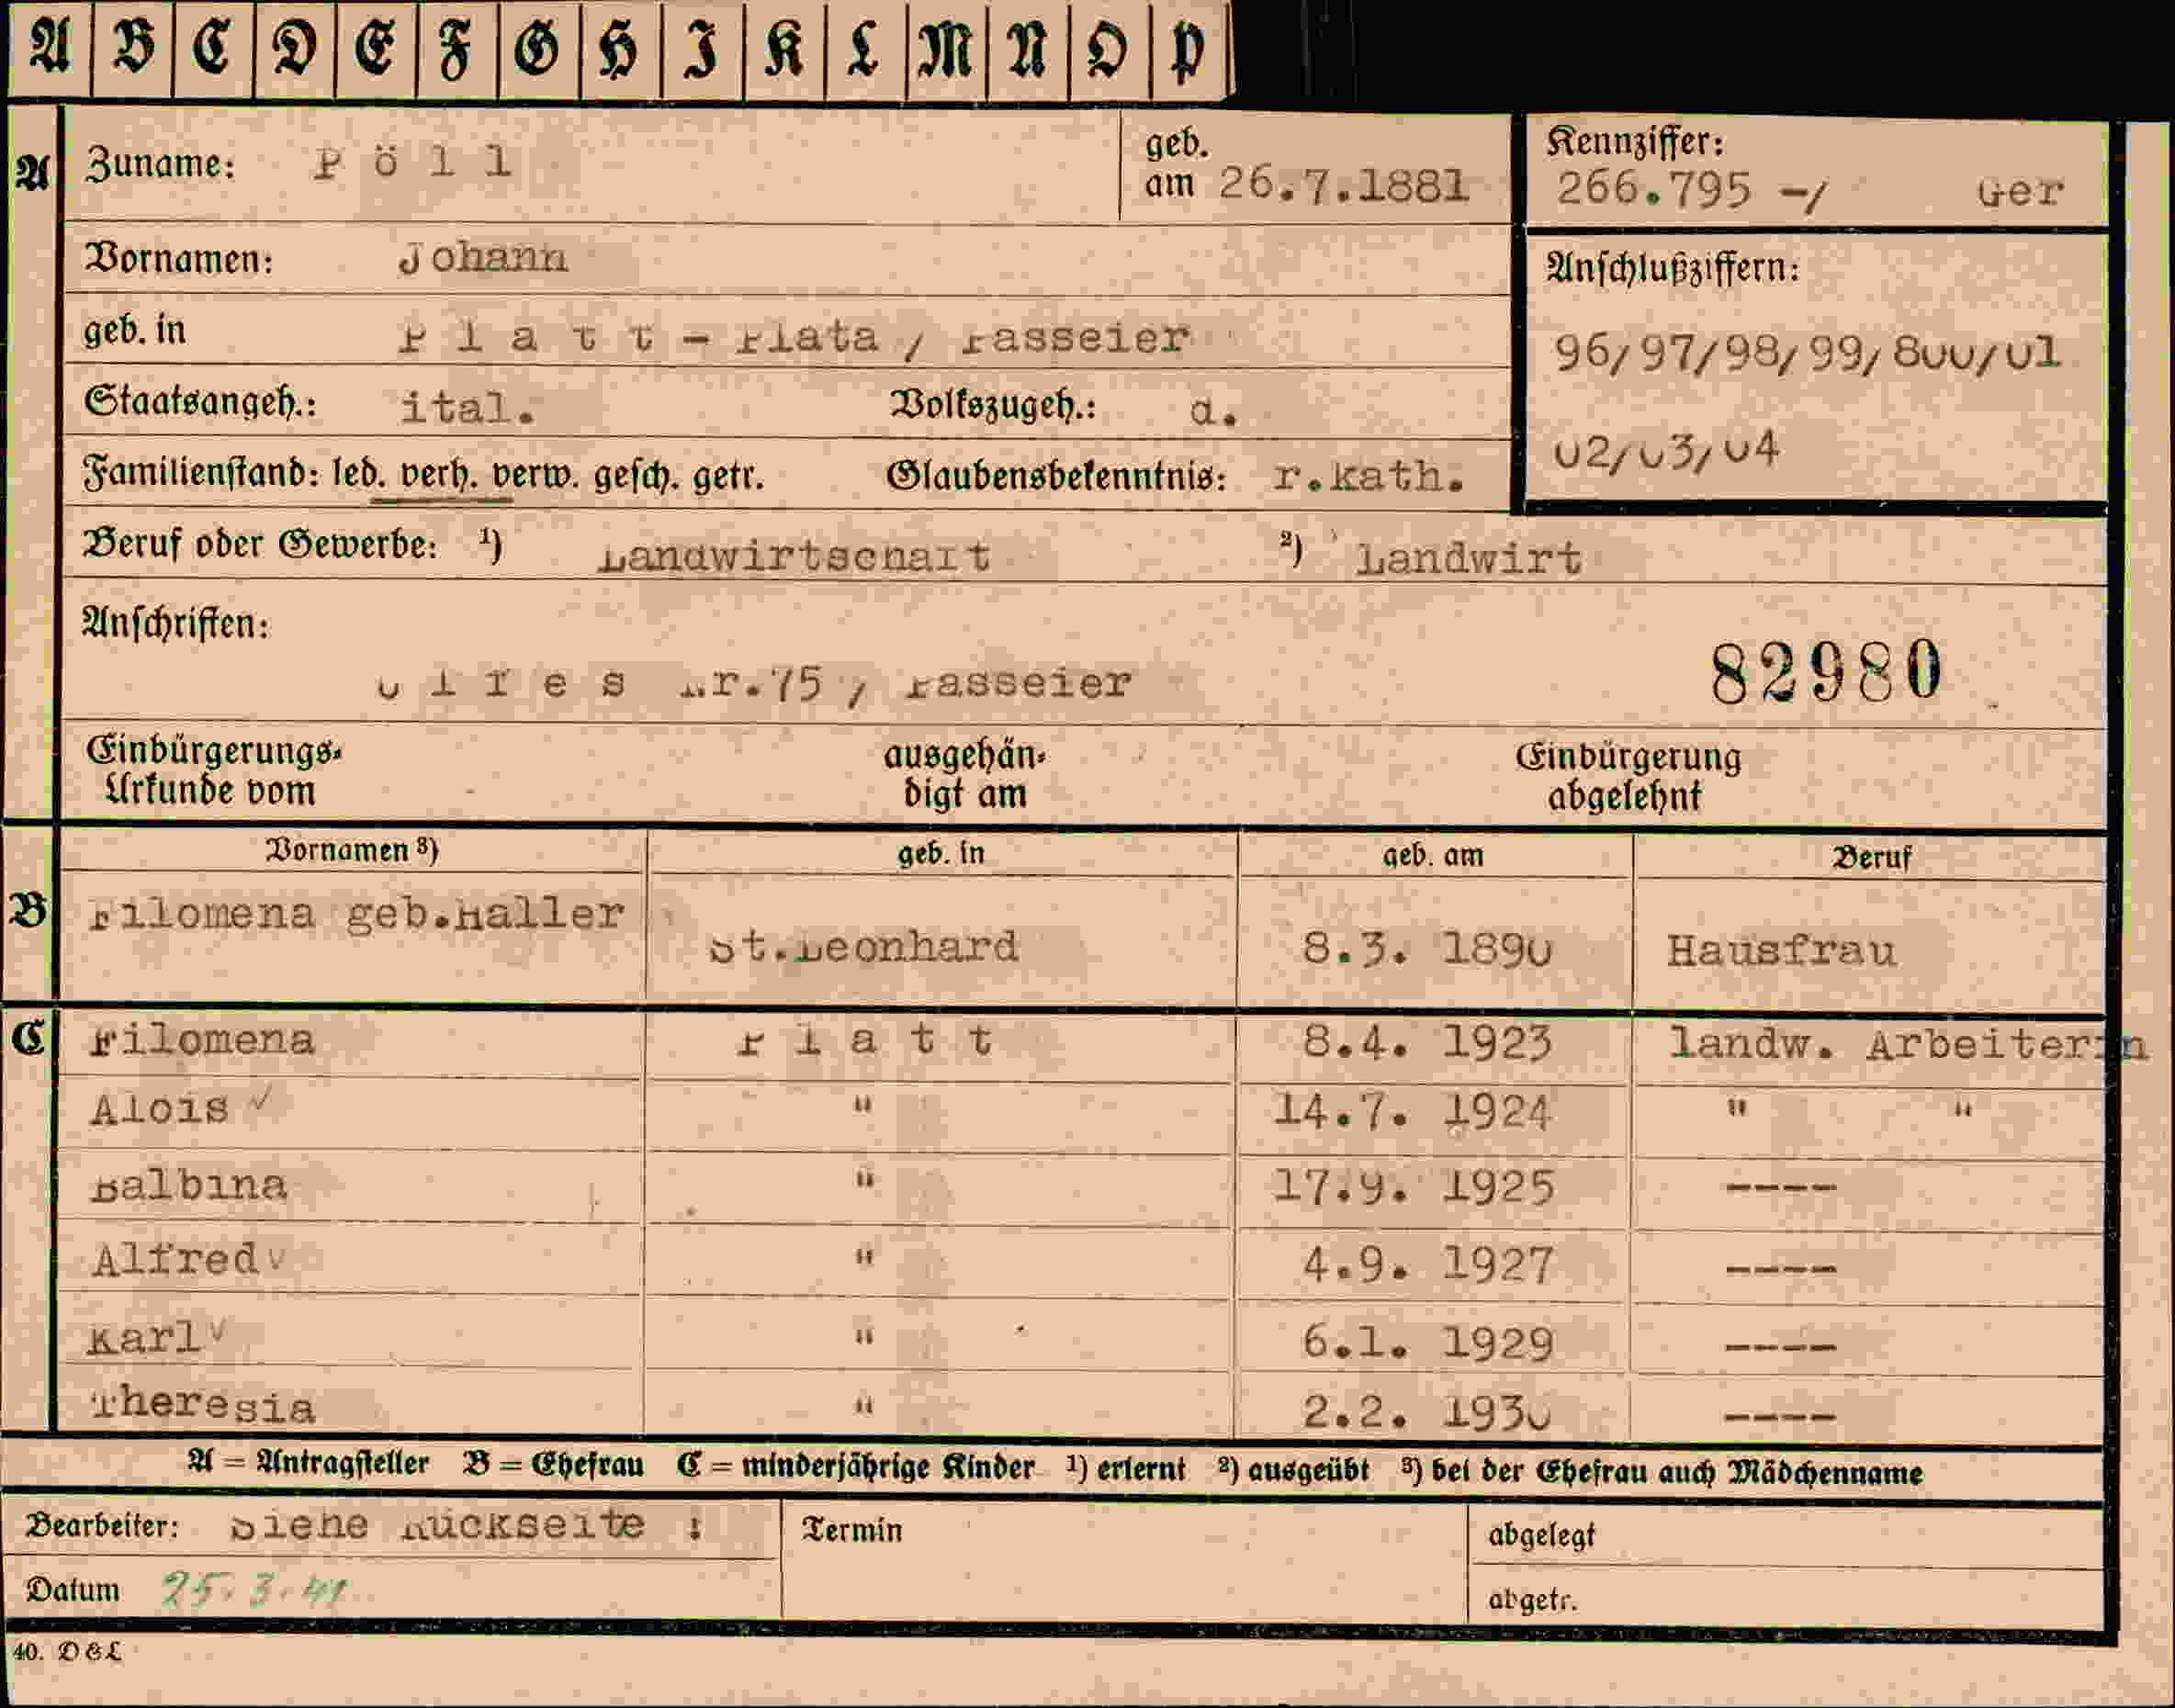 A B C D E F G H I K L M N O P
A Zuname: Pöll geb. am 26.7.1881
Kennziffer: 266.795 -/ Ger
Vornamen: Johann
Anschlußziffern:
geb. in Platt - Plata / Passeier
96/97/98/99/800/01
Staatsangeh.: ital. Volkszugeh.: d.
02/03/04
Familienstand: led. verh. verw. gesch. getr. Glaubensbekenntnis: r.kath.
Beruf oder Gewerbe: ¹) Landwirtschaft ²) Landwirt
Anschriften:
Ulfes Nr.75 / Passeier 82980
Einbürgerungs-Urkunde vom ausgehändigt am Einbürgerung abgelehnt
Vornamen ³) geb. in geb. am Beruf
B Filomena geb.Haller St.Leonhard 8.3. 1890 Hausfrau
C Filomena Platt 8.4. 1923 landw. Arbeiterin
Alois ✓ " 14.7. 1924 " "
Balbina " 17.9. 1925 ----
Alfred ✓ " 4.9. 1927 ----
Karl ✓ " 6.1. 1929 ----
Theresia " 2.2. 1930 ----
A = Antragsteller B = Ehefrau C = minderjährige Kinder ¹) erlernt ²) ausgeübt ³) bei der Ehefrau auch Mädchenname
Bearbeiter: Siehe Rückseite ! Termin abgelegt
Datum 25.3.41 abgetr.
40. D & L